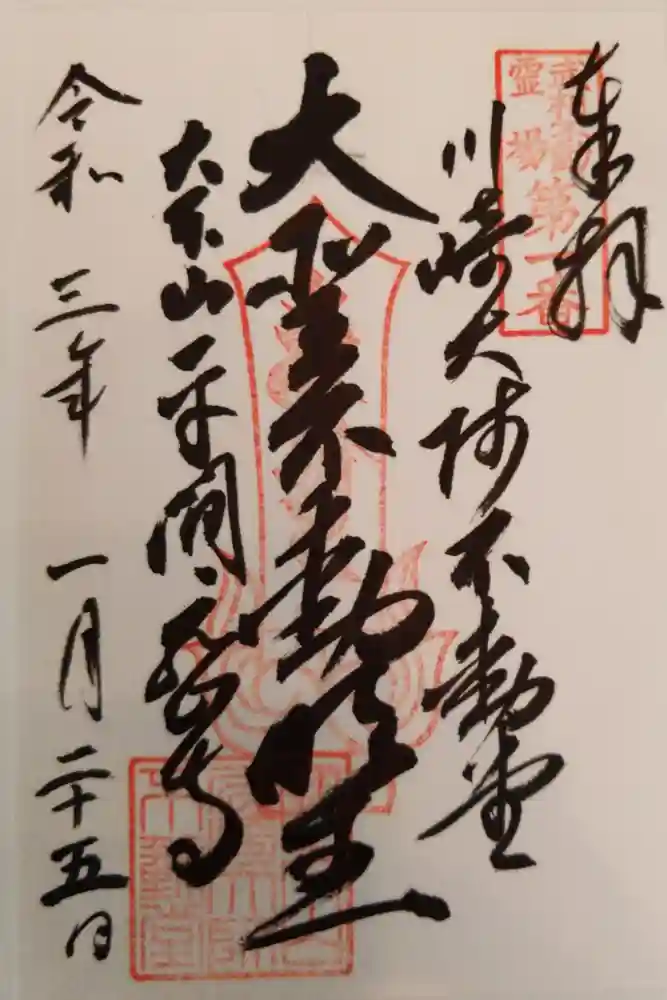 奉拝
霊場
第一番
川崎大師不動堂
大聖不動明王
大本山平間寺
令和三年一月二十五日